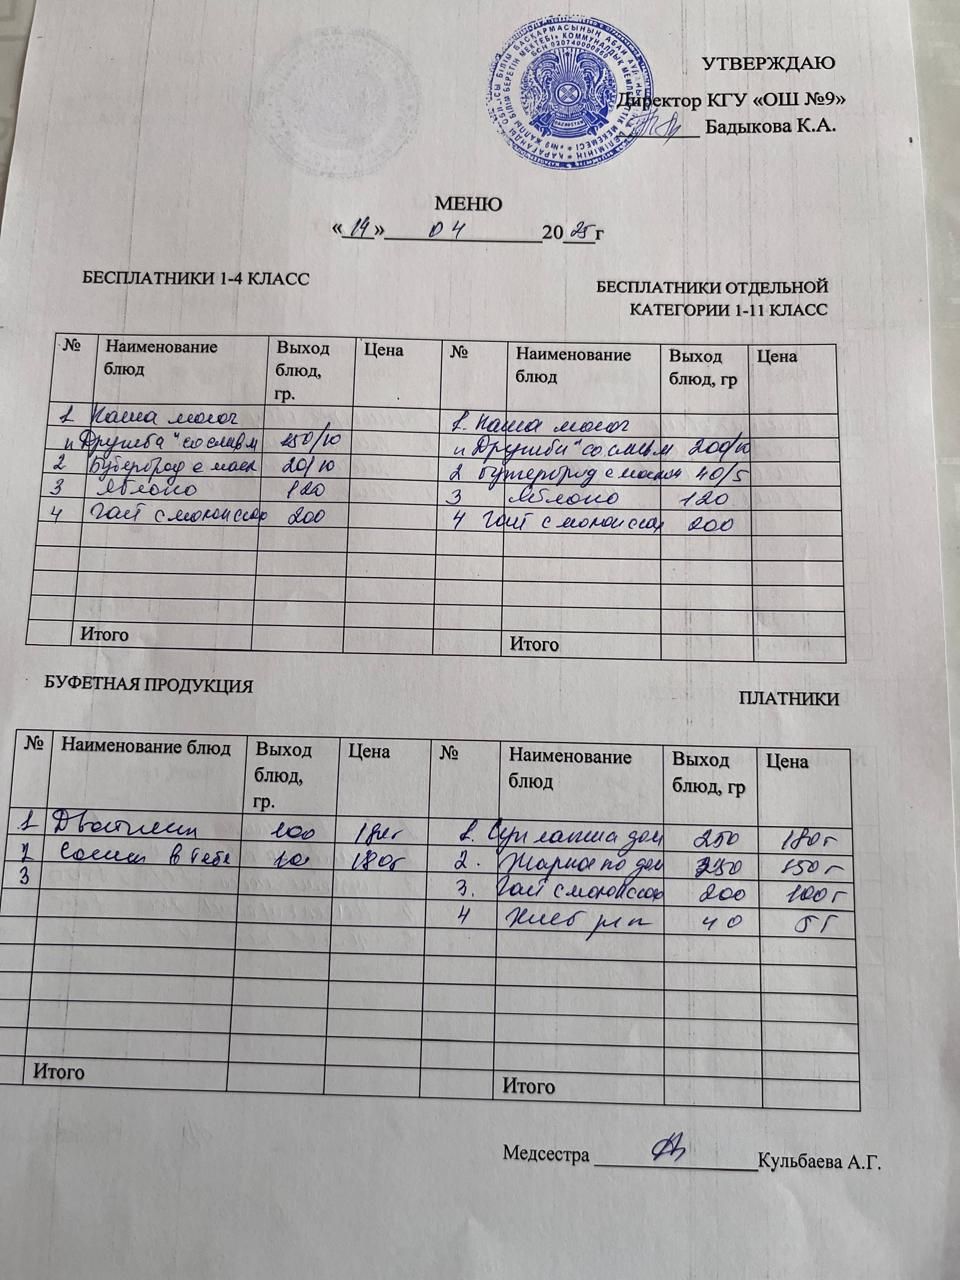 УТВЕРЖДАЮ
Директор КГУ «ОШ №9»
Бадыкова К.А.
МЕНЮ
«14» 04 2025г
БЕСПЛАТНИКИ 1-4 КЛАСС
БЕСПЛАТНИКИ ОТДЕЛЬНОЙ
КАТЕГОРИИ 1-11 КЛАСС
№ Наименование блюд Выход блюд, гр. Цена № Наименование блюд Выход блюд, гр Цена
1 Каша молоч 1. Каша молоч
"Дружба" со слив м 150/10 "Дружба" со слив м 200/10
2 Бутерброд с масл 20/10 2 бутерброд с маслом 40/5
3 Яблоко 120 3 Яблоко 120
4 Чай с молоком сах 200 4 Чай с молоком сах 200
Итого Итого
БУФЕТНАЯ ПРОДУКЦИЯ
ПЛАТНИКИ
№ Наименование блюд Выход блюд, гр. Цена № Наименование блюд Выход блюд, гр Цена
1 100 180г 1. Суп лапша дом 250 180г
2 в тесте 180г 2. Жаркое по дом 250 150г
3 3. Чай с молоком сах 200 100г
4 Хлеб 40 5г
Итого Итого
Медсестра Кульбаева А.Г.